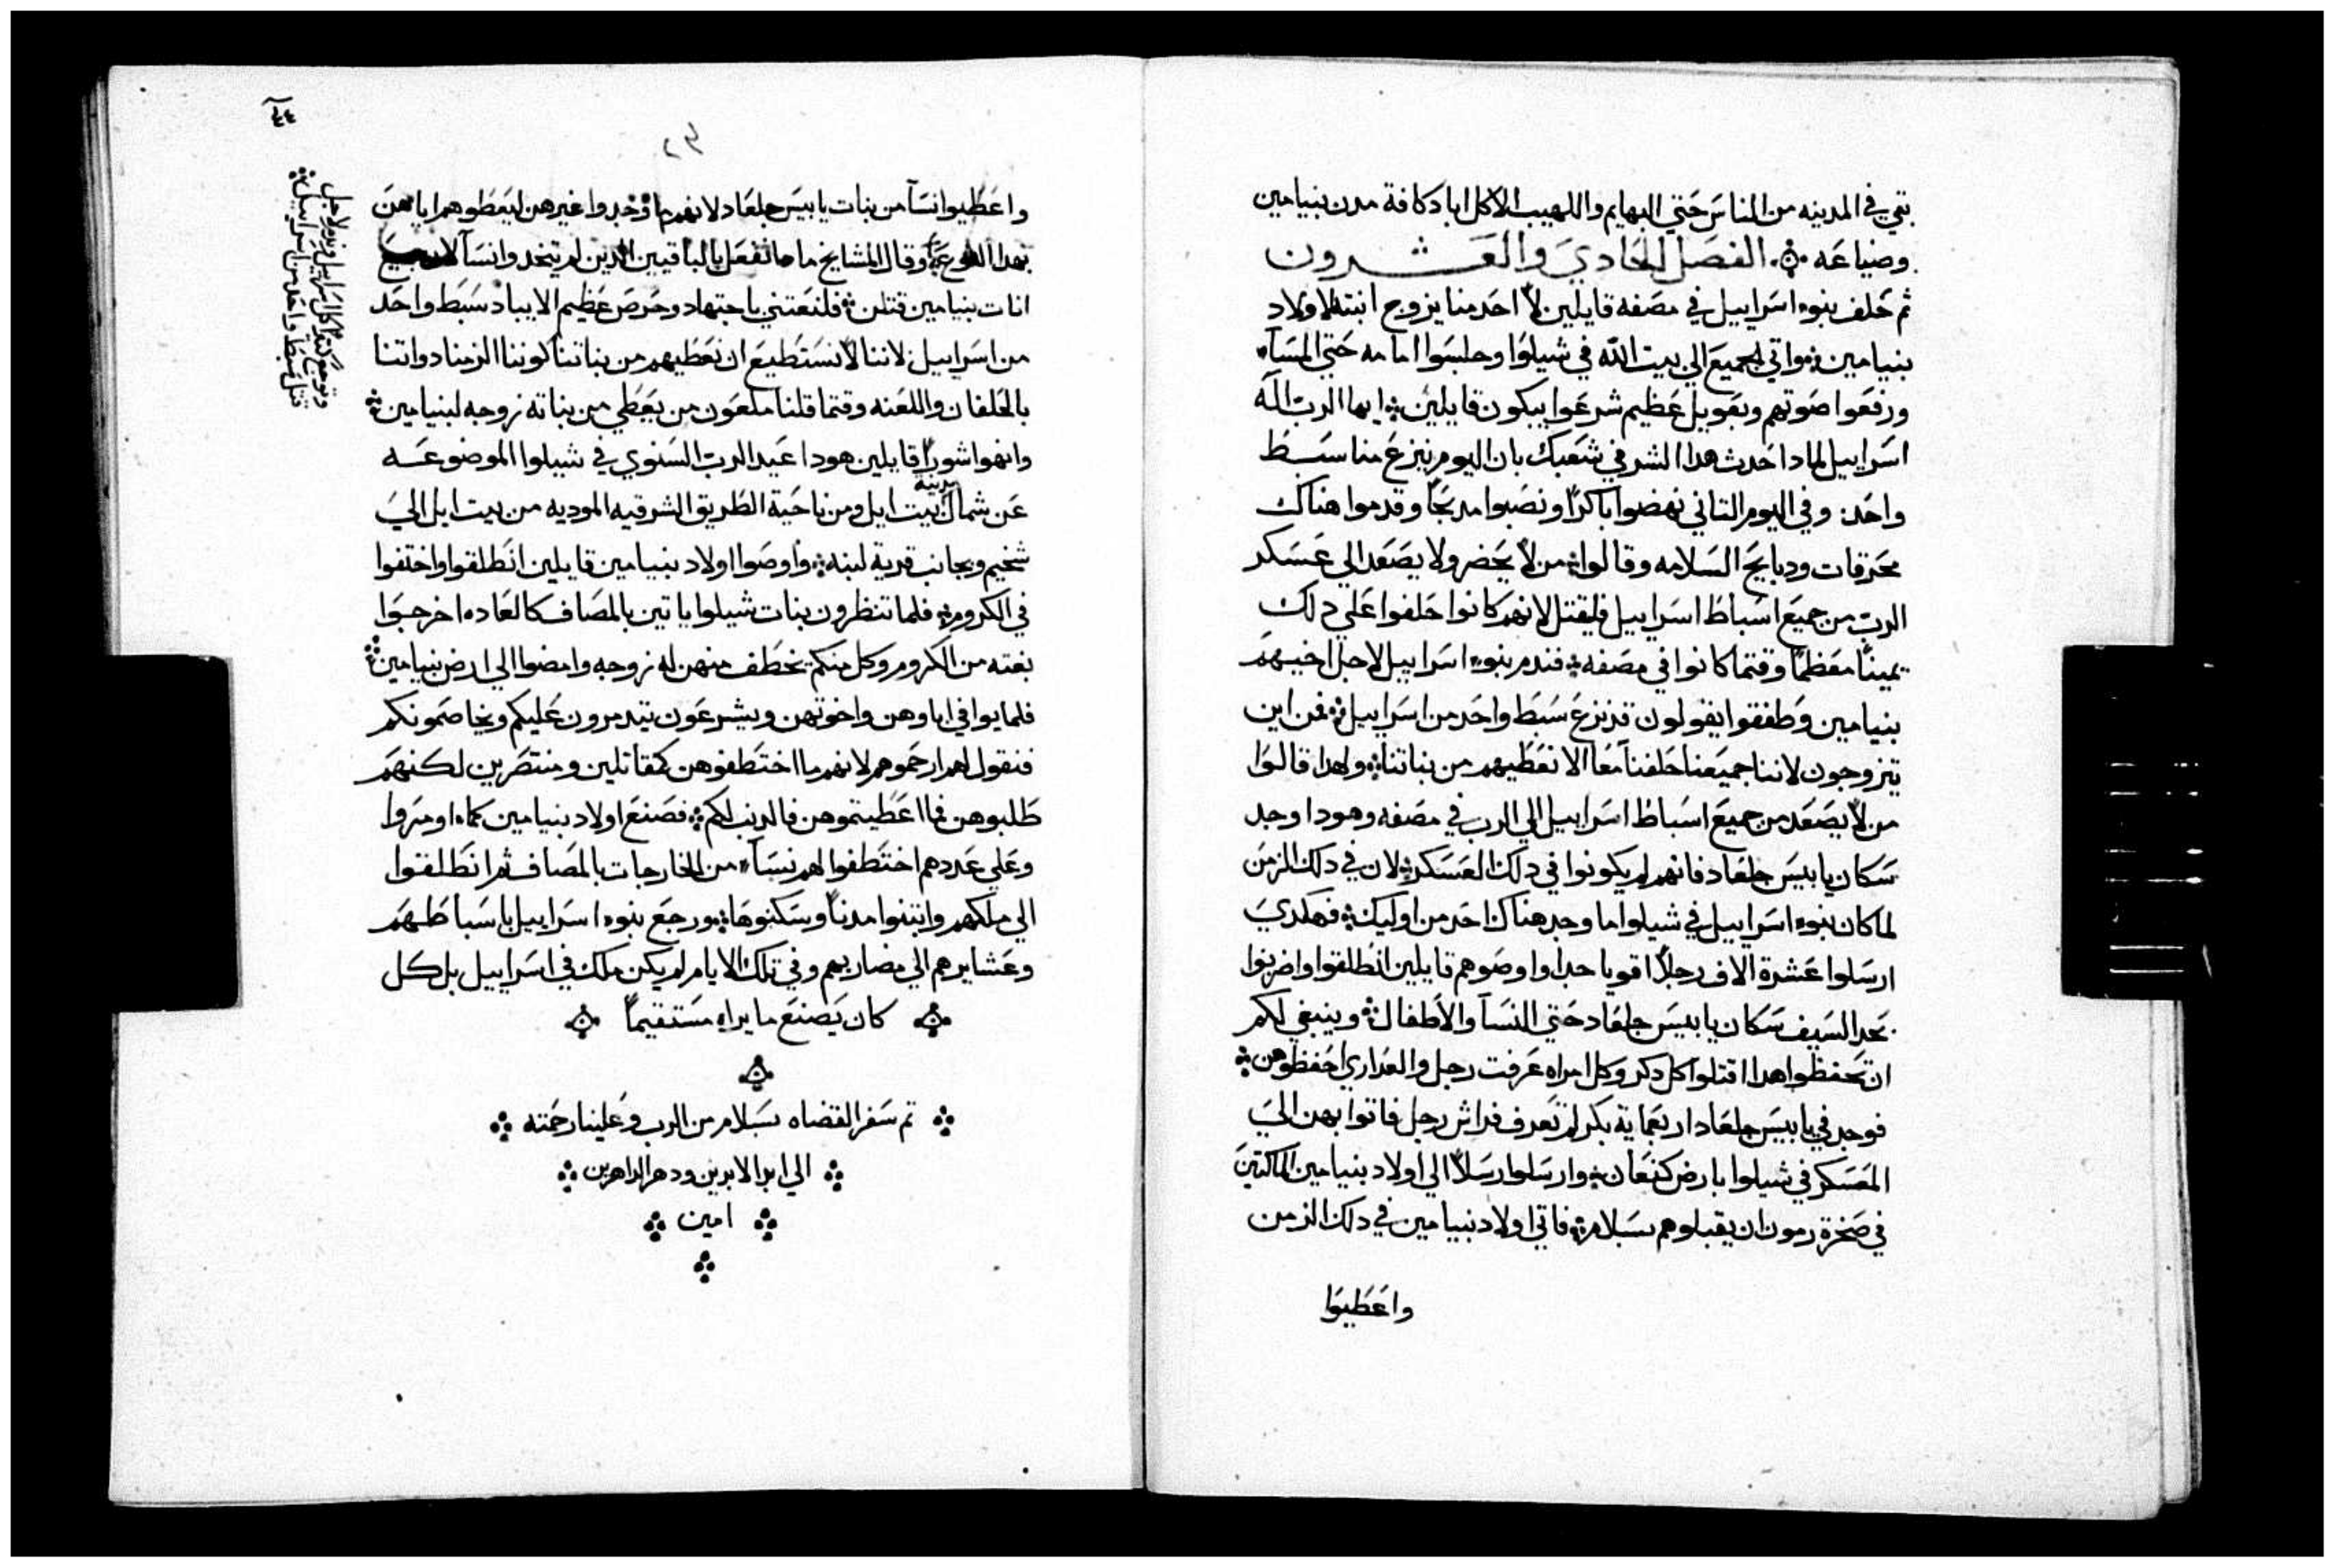 بقي في المدينه من الناس حتي البهايم واللهيب الاكل اباد كافة مدن بنيامين
وضياعه الفصل الحادي والعشرون
ثم حلف بنوا اسراييل في مصفه قايلين لا احد منا يزوج ابنته لاولاد
بنيامين واتي الجميع الي بيت الله في شيلوا وجلسوا امامه حتي المسآ
ورفعوا صوتهم وبعويل عظيم شرعوا يبكون قايلين ايها الرب اله
اسراييل لمادا حدث هدا الشر في شعبك بان اليوم ينزع منا سبط
واحد وفي اليوم التاني نهضوا باكرًا ونصبوا مدبحًا وقدموا هناك
محرقات ودبايح السلامه وقالوا من لا يحضر ولا يصعد الي عسكر
الرب من جميع اسباط اسراييل فليقتل لانهم كانوا حلفوا علي دلك
يمينًا معظمًا وقتما كانوا في مصفه فندم بنوا اسراييل لاجل اخيهم
بنيامين وطفقوا يقولون قد نزع سبط واحد من اسراييل فمن اين
يتزوجون لاننا جميعنا حلفنا معًا الا نعطيهم من بناتنا ولهدا قالوا
من لا يصعد من جميع اسباط اسراييل الي الرب في مصفه وهودا وجد
سكان يابيس جلعاد فانهم لم يكونوا في دلك العسكر لان في دلك الزمن
لما كان بنوا اسراييل في شيلوا ما وجد هناك احد من اوليك فهكدي
ارسلوا عشرة الاف رجلًا اقويا جدا واوصوهم قايلين انطلقوا واضربوا
بحد السيف سكان يابيس جلعاد حتي النسآ والاطفال وينبغي لكم
ان تحفظوا هدا اقتلوا كل دكر وكل امراه عرفت رجل والعداري احفظوهن
فوجد في يابيس جلعاد اربعماية بكر لم تعرف فراش رجل فاتوا بهن الي
المعسكر في شيلوا بارض كنعان وارسلوا رسلًا الي اولاد بنيامين الماكتين
في صخرة رمون ان يقبلوهم بسلام فاتي اولاد بنيامين في دلك الزمن
واعطيوا
واعطيوا نسآ من بنات يابيس جلعاد لانهم ما وجدوا غيرهن ليعطوهم اياهن
بهدا النوع وقال المشايخ مادا نفعل بالباقيين الدين لم يتخدوا نسآ لان جميع
انات بنيامين قتلن فلنعتني باجتهاد وحرص عظيم الا يباد سبط واحد
من اسراييل لاننا لا نستطيع ان نعطيهم من بناتنا كوننا الزمنا دواتنا
بالحلفان واللعنه وقتما قلنا ملعون من يعطي من بناته زوجه لبنيامين
وانهوا شورًا قايلين هودا عيد الرب السنوي في شيلوا الموضوعه
عن شمال مدينة بيت ايل ومن ناحية الطريق الشرقيه الموديه من بيت ايل الي
شخيم وبجانب قرية لبنه واوصوا اولاد بنيامين قايلين انطلقوا واختفوا
في الكروم فلما تنظرون بنات شيلوا ياتين بالمصاف كالعاده اخرجوا
بغته من الكروم وكل منكم يخطف منهن له زوجه وامضوا الي ارض بنيامين
فلما يوافي اباوهن واخوتهن ويشرعون يتدمرون عليكم ويخاصمونكم
فنقول لهم ارحموهم لانهم ما اختطفوهن كمقاتلين ومنتصرين لكنهم
طلبوهن فما اعطيتموهن فالدنب لكم فصنع اولاد بنيامين كما اومروا
وعلي عددهم اختطفوا لهم نسآ من الخارجات بالمصاف ثم انطلقوا
الي ملكهم وابتنوا مدنًا وسكنوها ورجع بنوا اسراييل باسباطهم
وعشايرهم الي مضاربهم وفي تلك الايام لم يكن ملك في اسراييل بل كل
كان يصنع ما يراه مستقيمًا
تم سفر القضاه بسلام من الرب وعلينا رحمته
الي ابد الابدين ودهر الداهرين
امين